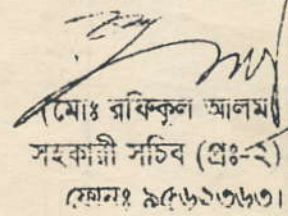 (মোঃ রফিকুল আলম)
সহকারী সচিব (প্রঃ-২)
ফোনঃ ৯৫৬১৩৬৩।